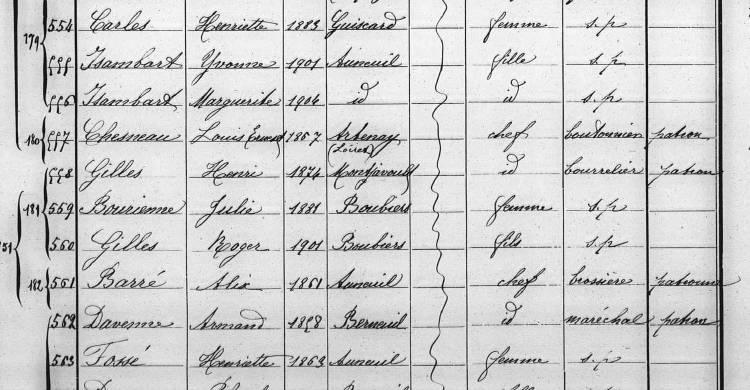 179 554 Carles Henriette 1883 Guiscard femme s.p
555 Isambart Yvonne 1901 Auneuil fille s.p
556 Isambart Marguerite 1906 id id s.p
180 557 Chesneau Louis Ernest 1857 Artenay (Loiret) chef boutonnier patron
558 Gilles Henri 1874 Montjavoult id bourrelier patron
181 559 Bourienne Julie 1881 Boubiers femme s.p
560 Gilles Roger 1901 Boubiers fils s.p
182 561 Barré Alix 1861 Auneuil chef brossière patronne
562 Davenne Armand Berneuil id maréchal patron
563 Fossé Henriette 1863 Auneuil femme s.p